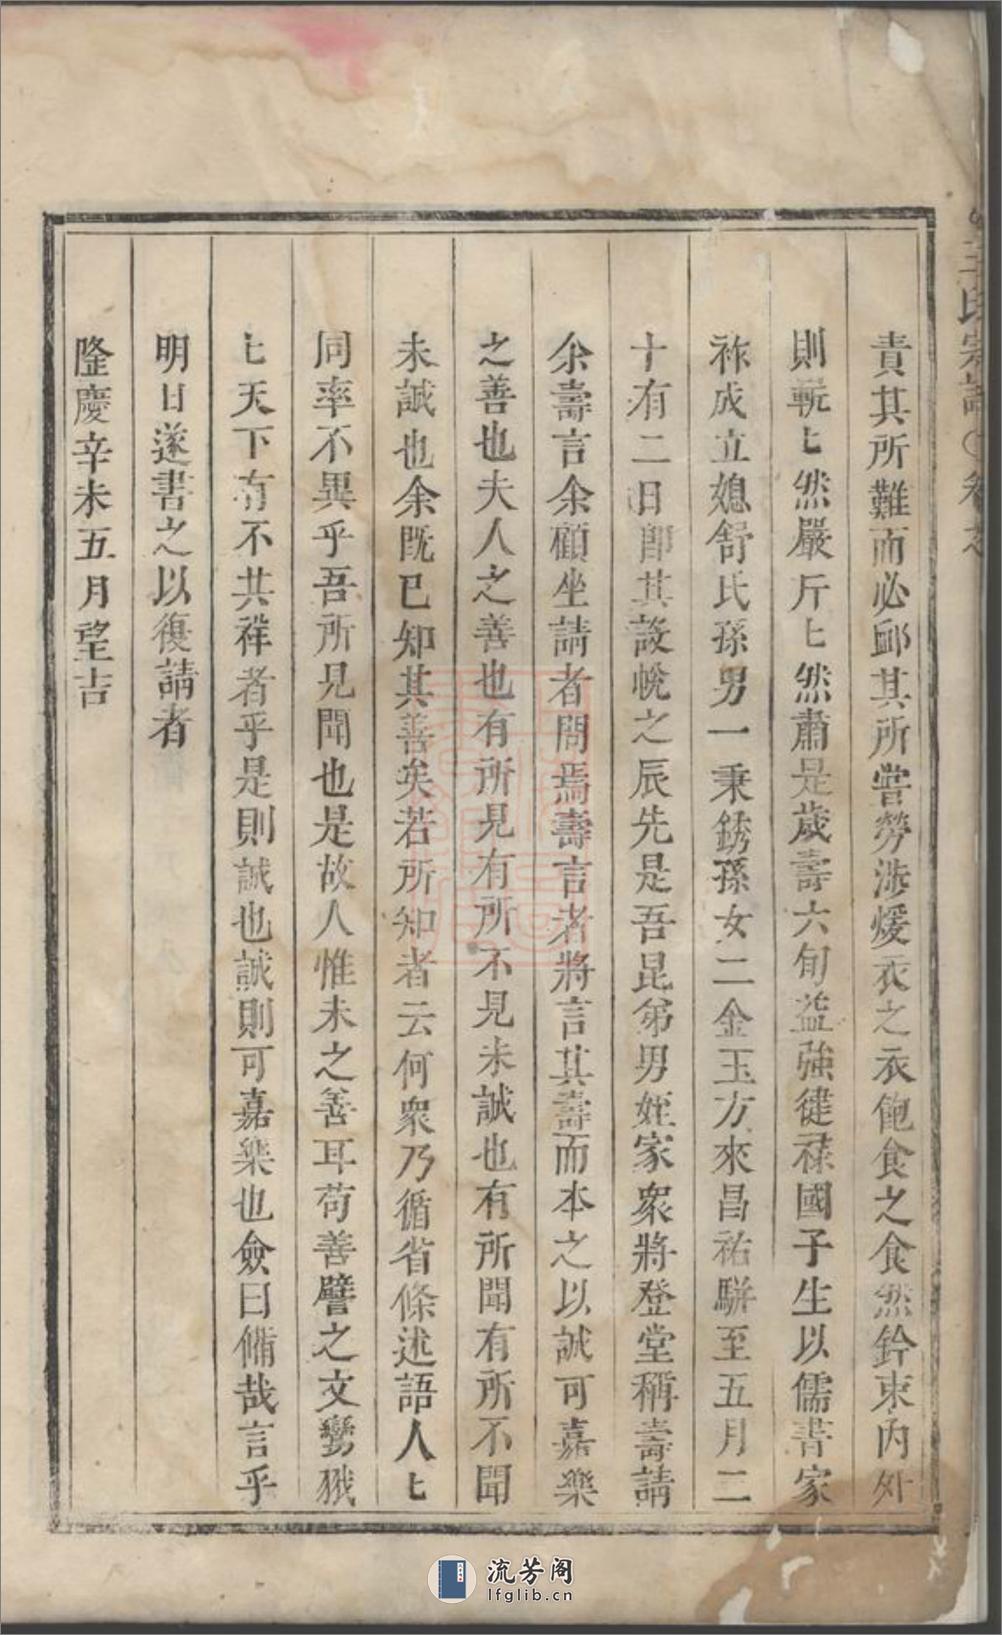 責其所難而必邮其所嘗勞涉煖衣之衣飽食之食然鈐束内外
則斬〻然嚴斤〻然肅是歲壽六旬益強健祿國子生以儒書家
祚成立媳舒氏孫男一秉銹孫女二金玉方來昌祐駢至五月二
十有二日卽其設帨之辰先是吾昆弟男姪家衆將登堂稱壽請
余壽言余顧坐請者問焉壽言者將言其壽而本之以誠可嘉樂
之善也夫人之善也有所見有所不見未誠也有所聞有所不聞
未誠也余既已知其善矣若所知者云何衆乃循省條述語人〻
同率不異乎吾所見聞也是故人惟未之善耳苟善譬之文蠻貊
〻天下有不共祥者乎是則誠也誠則可嘉樂也僉曰脩哉言乎
明日遂書之以復請者
隆慶辛未五月望吉
王氏宗譜
流芳阁
lfglib.cn